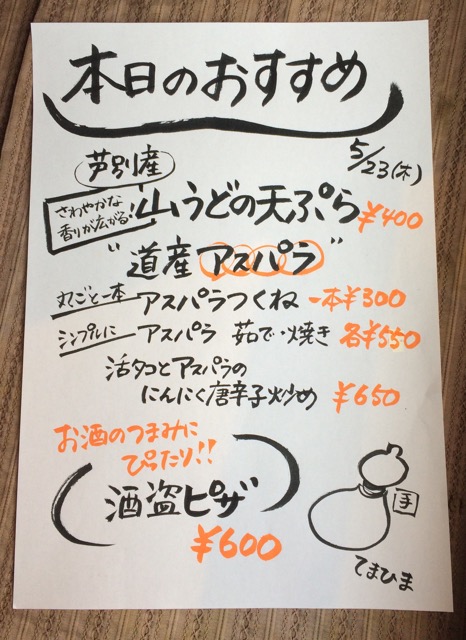 本日のおすすめ
5/23(木)
芦別産
さわやかな
香りが広がる!
山うどの天ぷら ¥400
"道産アスパラ"
丸ごと一本 アスパラつくね 一本¥300
シンプルに アスパラ 茹で・焼き 各¥550
活タコとアスパラの
にんにく唐辛子炒め ¥650
お酒のつまみに
ぴったり!!
酒盗ピザ
¥600
手
てまひま